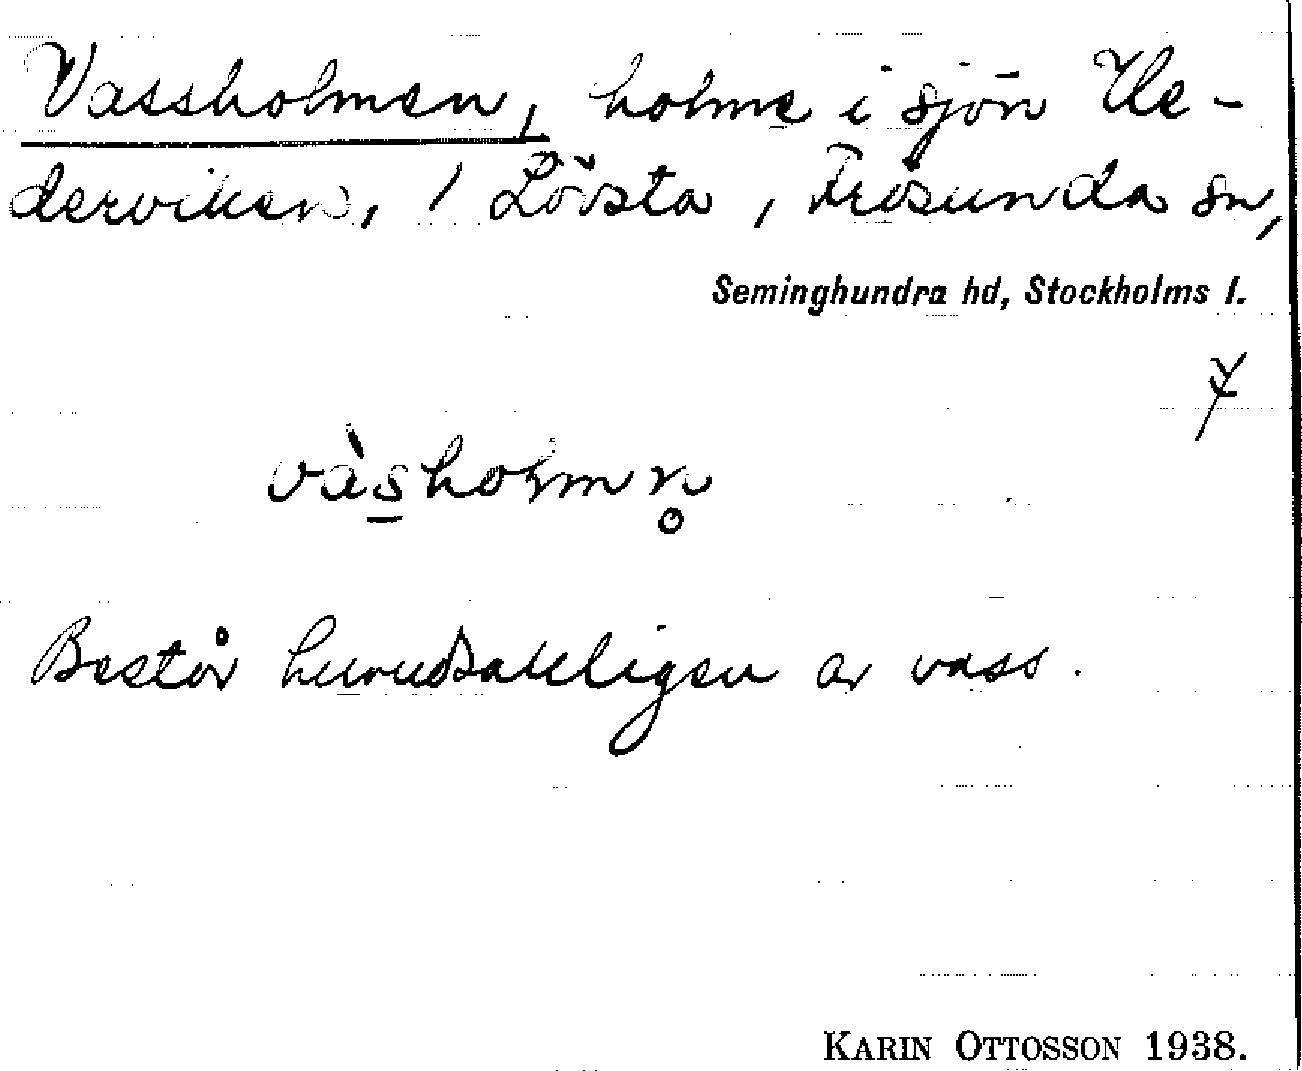 Vassholmen, holme i sjön He-
derviken, 1 Lövsta, Frösunda sn,
Seminghundra hd, Stockholms l.
và̱sholmn̥
Består huvudsakligen av vass.
KARIN OTTOSSON 1938.